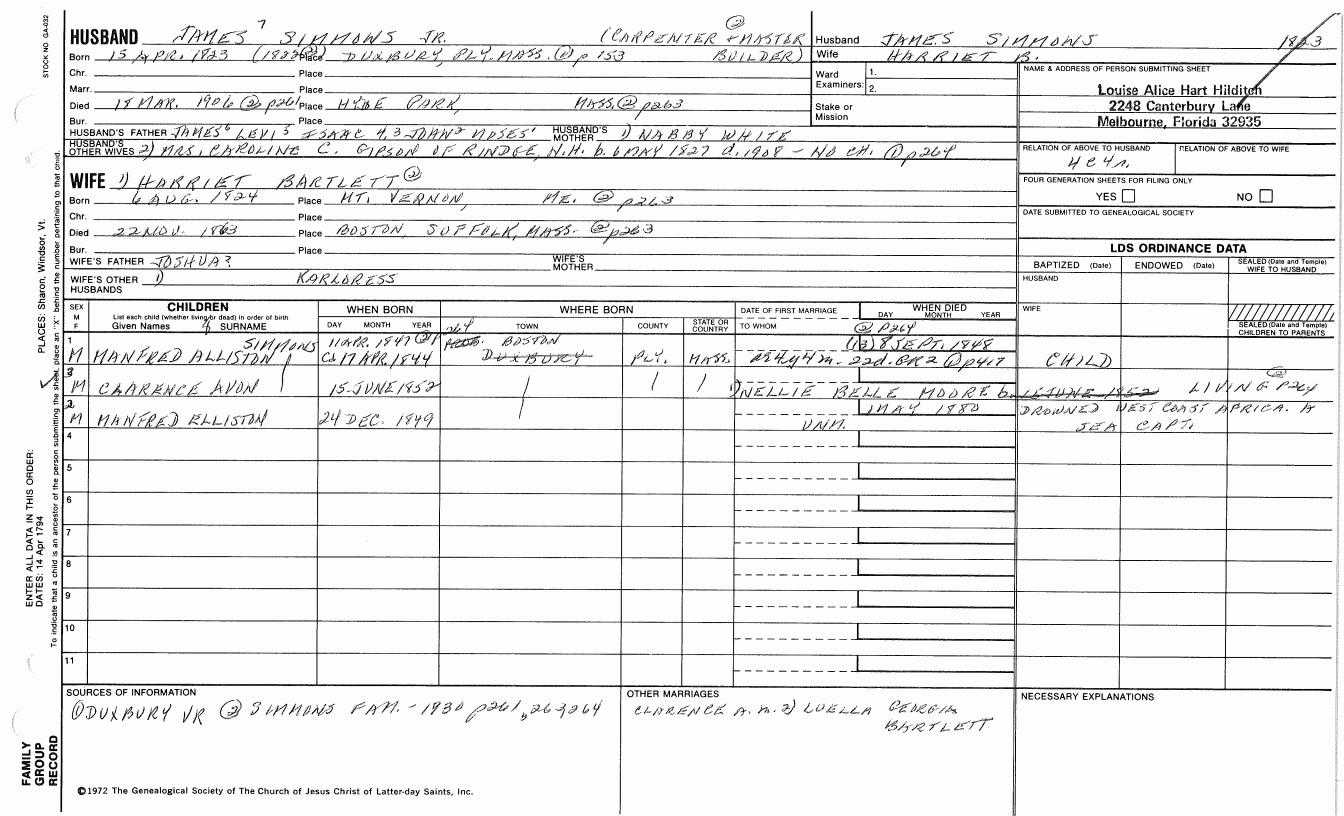 STOCK NO. GA-032
HUSBAND JAMES 7 SIMMONS JR. (CARPENTER + MASTER ②
Born 15 APR. 1823 Place DUXBURY, PLY. MASS. ① p 153 BUILDER)
Chr. Place
Marr. Place
Died MAR. 1906 ② p261 Place HYDE PARK, MASS. ② p263
Bur. Place
HUSBAND'S FATHER JAMES 6 LEVI 5 ISAAC 4,3 JOHN 2 MOSES 1 HUSBAND'S MOTHER 1) NABBY WHITE
HUSBAND'S OTHER WIVES 2) MRS. CAROLINE C. GIPSON OF RINDGE, N.H. b. 6 MAY 1827 d. 1908 - NO CH. ① p264
Husband JAMES SIMMONS 1823
Wife HARRIET B.
Ward Examiners: 1.
2.
Stake or Mission
NAME & ADDRESS OF PERSON SUBMITTING SHEET
Louise Alice Hart Hilditch
2248 Canterbury Lane
Melbourne, Florida 32935
RELATION OF ABOVE TO HUSBAND RELATION OF ABOVE TO WIFE
FOUR GENERATION SHEETS FOR FILING ONLY
YES NO
DATE SUBMITTED TO GENEALOGICAL SOCIETY
WIFE 1) HARRIET BARTLETT ②
Born 6 AUG. 1824 Place MT. VERNON, ME. ② p263
Chr. Place
Died 22 NOV. 1863 Place BOSTON, SUFFOLK, MASS. ② p263
Bur. Place
WIFE'S FATHER JOSHUA? WIFE'S MOTHER
WIFE'S OTHER HUSBANDS 1) KARLDRESS
LDS ORDINANCE DATA
BAPTIZED (Date) ENDOWED (Date) SEALED (Date and Temple) WIFE TO HUSBAND
HUSBAND
WIFE
SEALED (Date and Temple) CHILDREN TO PARENTS
SEX M F CHILDREN WHEN BORN WHERE BORN DATE OF FIRST MARRIAGE WHEN DIED
List each child (whether living or dead) in order of birth
Given Names SURNAME DAY MONTH YEAR TOWN COUNTY STATE OR COUNTRY TO WHOM DAY MONTH YEAR
SIMMONS 11 APR. 1847 ② p 264 BOSTON ② p264
(13) 8 SEPT. 1848
1 M MANFRED ALLISTON 17 APR. 1844 DUXBURY PLY. MASS. 4m. 22d. GR2 ① p417 CHILD
3 M CLARENCE AVON 15 JUNE 1852 1) NELLIE BELLE MOORE b. 15 JUNE 1852 LIVING ② p264
2 M MANFRED ELLISTON 24 DEC. 1849 UNM. 1 MAY 1880 DROWNED WEST COAST AFRICA. A
SEA CAPT.
4
5
6
7
8
9
10
11
SOURCES OF INFORMATION
① DUXBURY VR ② SIMMONS FAM. - 1930 p261, 263, 264
OTHER MARRIAGES
CLARENCE A. m. 2) LUELLA GEORGIA
BARTLETT
NECESSARY EXPLANATIONS
©1972 The Genealogical Society of The Church of Jesus Christ of Latter-day Saints, Inc.
FAMILY GROUP RECORD
ENTER ALL DATA IN THIS ORDER:
DATES: 14 Apr 1794
PLACES: Sharon, Windsor, Vt.
To indicate that a child is an ancestor of the person submitting the sheet, place an "X" behind the number pertaining to that child.